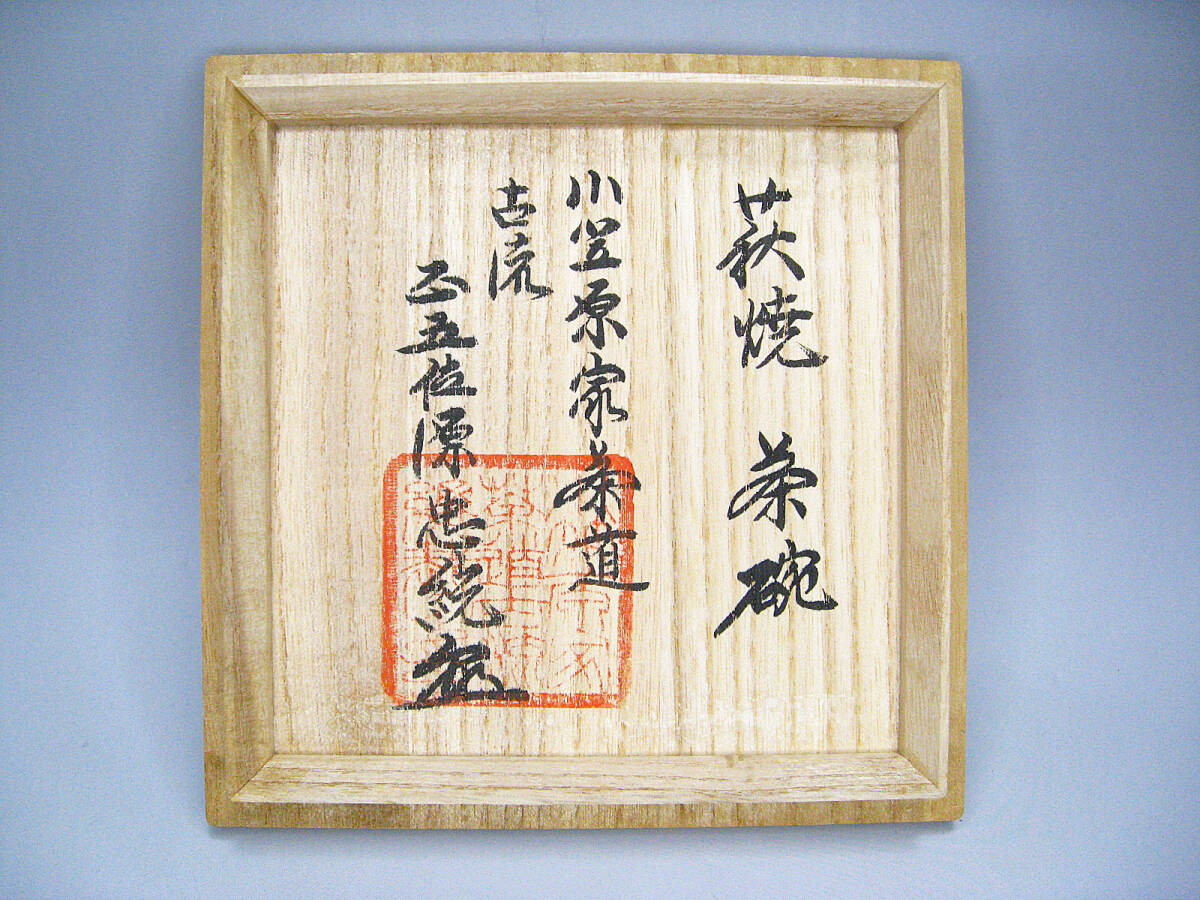 萩焼 茶碗
小笠原家茶道
古流
正五位源忠統